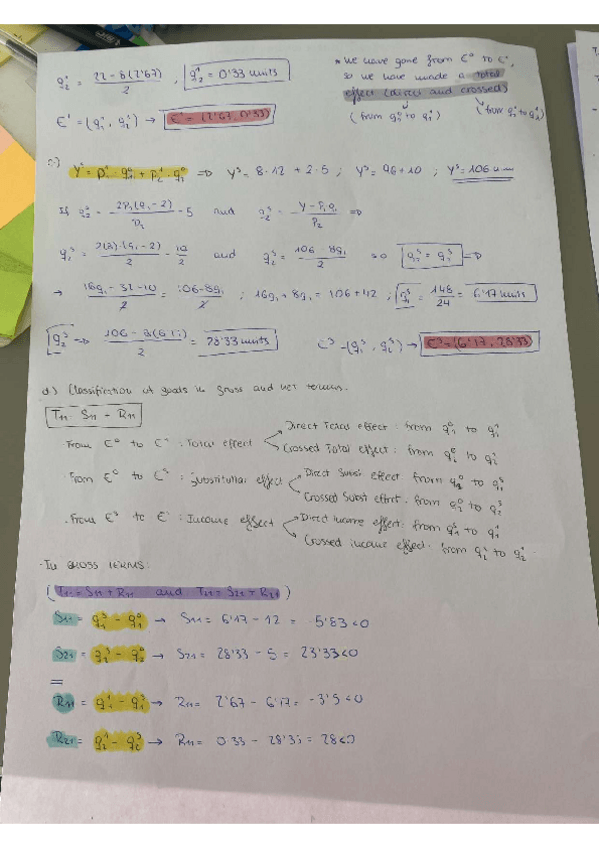 q₂¹ = (22 - 8(2'67))/2 , q₂¹ = 0'33 units
* We have gone from E⁰ to E¹,
so we have made a total
effect (direct and crossed)
E¹ = (q₁¹, q₂¹) → E¹ = (2'67, 0'33)
(from q₁⁰ to q₁¹) (from q₂⁰ to q₂¹)
c) Yˢ = P₁¹ · q₁⁰ + P₂¹ · q₂⁰ => Yˢ = 8·12 + 2·5 ; Yˢ = 96 + 10 ; Yˢ = 106 u.m
If q₂ˢ = 2P₁(q₁-2)/P₂ - 5 and q₂ˢ = (Y - P₁q₁)/P₂ =>
q₂ˢ = 2(8)·(q₁-2)/2 - 10/2 and q₂ˢ = (106 - 8q₁)/2 so q₂ˢ = q₂ˢ =>
→ (16q₁ - 32 - 10)/2 = (106 - 8q₁)/2 ; 16q₁ + 8q₁ = 106 + 42 ; q₁ˢ = 148/24 = 6'17 units
q₂ˢ => (106 - 8(6'17))/2 = 28'33 units Eˢ = (q₁ˢ, q₂ˢ) → Eˢ = (6'17, 28'33)
d) Classification of goods in gross and net terms.
T₁₁ = S₁₁ + R₁₁
· From E⁰ to E¹ : Total effect
Direct Total effect : from q₁⁰ to q₁¹
Crossed Total effect : from q₂⁰ to q₂¹
From E⁰ to Eˢ : Substitution effect
Direct Subst effect from q₁⁰ to q₁ˢ
Crossed Subst effect : from q₂⁰ to q₂ˢ
· From Eˢ to E¹ : Income effect
Direct Income effect : from q₁ˢ to q₁¹
Crossed income effect · from q₂ˢ to q₂¹
· In GROSS TERMS:
(T₁₁ = S₁₁ + R₁₁ and T₂₁ = S₂₁ + R₂₁)
S₁₁ = q₁ˢ - q₁⁰ → S₁₁ = 6'17 - 12 = -5'83 <0
S₂₁ = q₂ˢ - q₂⁰ → S₂₁ = 28'33 - 5 = 23'33 <0
=
R₁₁ = q₁¹ - q₁ˢ → R₁₁ = 2'67 - 6'17 = -3'5 <0
R₂₁ = q₂¹ - q₂ˢ → R₁₁ = 0'33 - 28'33 = 28 <0